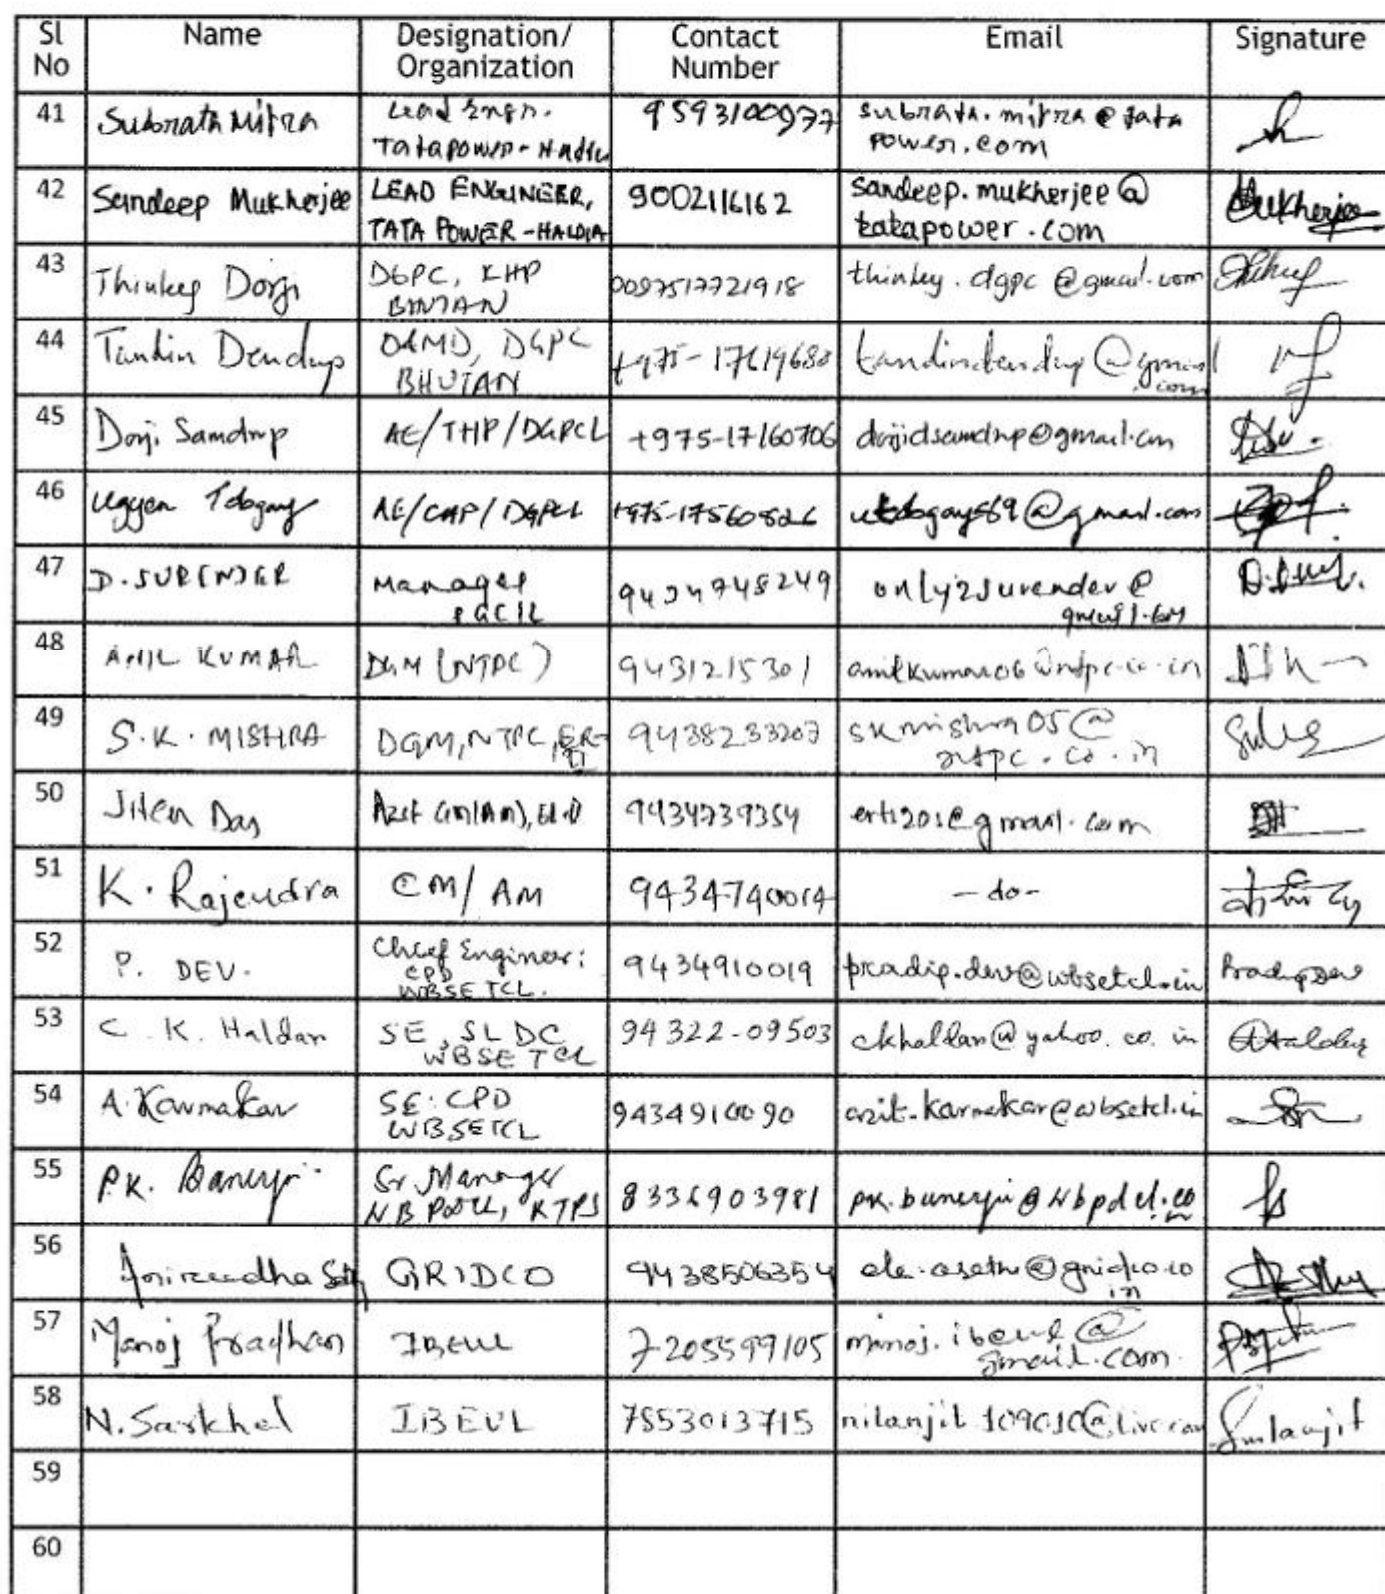 Sl No Name Designation/ Organization Contact Number Email Signature
41 Subrata Mitra Lead Engr. Tatapower- 9593100977 subrata.mitra@tata power.com
42 Sandeep Mukherjee LEAD ENGINEER, TATA POWER-HALDIA 9002116162 sandeep.mukherjee@ tatapower.com Mukherjee
43 Thinley Dorji DGPC, KHP BHUTAN 0097517721918 thinley.dgpc@gmail.com
44 Tandin Dendup O&MD, DGPC BHUTAN +975-17619680 tandindendup@gmail .com
45 Dorji Samdrup AE/THP/DGPCL +975-17160706 dorjidsamdrup@gmail.com
46 Ugyen Tobgay AE/CHP/DGPCL +975-17560826 @gmail.com
47 D. SURENDER Manager PGCIL 9434748249 only2surender@ gmail.com
48 ANIL KUMAR DGM (NTPC) 9431215301 anilkumar06@ntpc.co.in
49 S.K. MISHRA DGM, NTPC, ER-II 9438233207 skmishra05@ ntpc.co.in
50 Jiten Das 9434739354 erts201@gmail.com
51 K. Rajendra CM/ AM 9434740014 -do-
52 P. DEV. Chief Engineer: CPD WBSETCL. 9434910019 pradip.dev@wbsetcl.in Pradip Dev
53 C. K. Haldar SE, SLDC WBSETCL 94322-09503 ckhaldar@yahoo.co.in
54 A. Karmakar SE: CPD WBSETCL 9434910090 azit.karmakar@wbsetcl.in
55 P.K. Banerji Sr Manager WBPDCL, KTPS 8336903981 pk.banerji@wbpdcl.co in
56 Aniruddha GRIDCO 9438506354 ele.asethi@gridco.co in
57 Manoj Pradhan IBEUL 7205599105 manoj.ibeul@ gmail.com
58 N. Sarkhel IBEUL 7853013715 nilanjit.109010@live.com Snilanjit
59
60